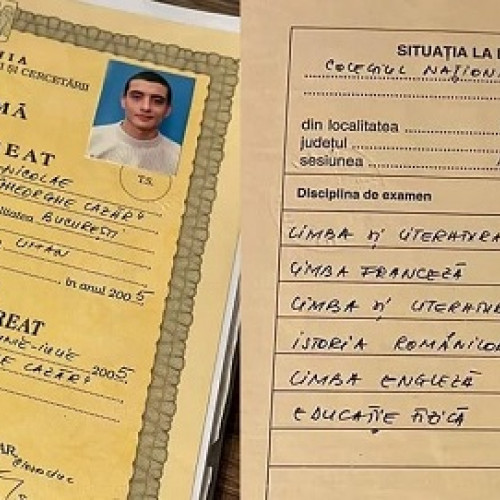 NIA
I ȘI CERCETĂRII
MĂ
REAT
NICOLAE
GHEORGHE LAZĂR"
litatea BUCUREȘTI
UMAN
în anul 2005
T.S.
REAT
IUNIE-IULIE 2005
E LAZĂR"
AR
SITUAȚIA LA
COLEGIUL NAȚION
din localitatea
județul
sesiunea
Disciplina de examen
LIMBA ȘI LITERATURA
LIMBA FRANCEZĂ
LIMBA ȘI LITERATURA
ISTORIA ROMÂNILOR
LIMBA ENGLEZĂ
EDUCAȚIE FIZICĂ